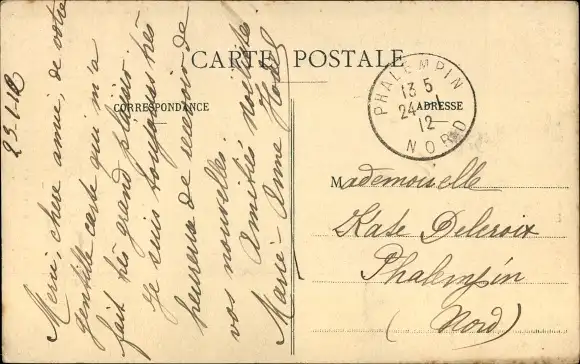 CARTE POSTALE
CORRESPONDANCE
ADRESSE
PHALEMPIN
13 5
24 -1
12
NORD
23-1-12
Merci, chère amie, de votre
gentille carte qui m'a
fait très grand plaisir
Je suis toujours très
heureuse de recevoir de
vos nouvelles
Amitiés
Marie-Anne
Mademoiselle
Kate Delcroix
Phalempin
(Nord)